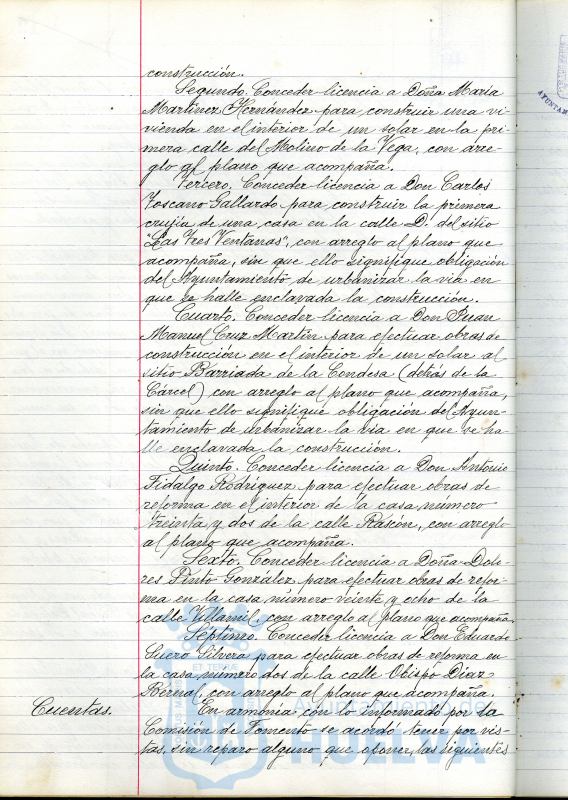 construcción.
Segundo. Conceder licencia a Doña María
Martínez Hernández para construir una vi-
vienda en el interior de un solar en la pri-
mera calle del Molino de la Vega, con arre-
glo al plano que acompaña.
Tercero. Conceder licencia a Don Carlos
Toscano Gallardo para construir la primera
crujía de una casa en la calle D. del sitio
"Las Tres Ventanas", con arreglo al plano que
acompaña, sin que ello signifique obligación
del Ayuntamiento de urbanizar la via en
que se halle enclavada la construcción.
Cuarto. Conceder licencia a Don Juan
Manuel Cruz Martín para efectuar obras de
construcción en el interior de un solar al
sitio Barriada de la Condesa (detrás de la
Cárcel) con arreglo al plano que acompaña,
sin que ello signifique obligación del Ayun-
tamiento de urbanizar la via en que se ha-
lle enclavada la construción.
Quinto. Conceder licencia a Don Antonio
Fidalgo Rodríguez para efectuar obras de
reforma en el interior de la casa número
treinta y dos de la calle Rascón, con arreglo
al plano que acompaña.
Sexto. Conceder licencia a Doña Dolo-
res Pinto González para efectuar obras de refor-
ma en la casa número veinte y ocho de la
calle Villamil, con arreglo al plano que acompaña.
Séptimo. Conceder licencia a Don Eduardo
Suero Silvera para efectuar obras de reforma en
la casa número dos de la calle Obispo Díaz
Bernal, con arreglo al plano que acompaña.
Cuentas.
En armonía con lo informado por la
Comisión de Fomento se acordó tener por vis-
tas, sin reparo alguno que oponer, las siguientes
ET TERRÆ
Ayuntamiento de
HUELVA
AYUNTAM